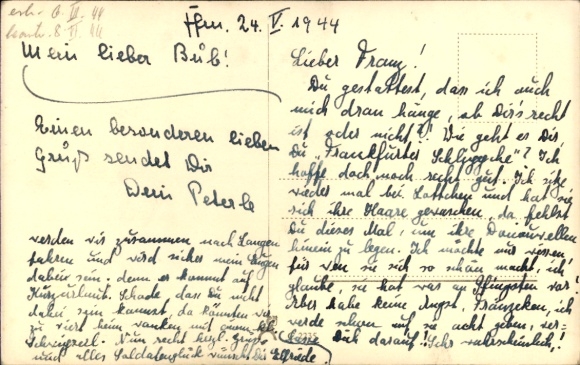 erh. 6. VI. 44
beantw. 8. VI. 44
Ffm. 24. V. 1944
Mein lieber Bub!
Einen besonderen lieben
Gruß sendet Dir
Dein Peterle
Lieber Franz!
Du gestattest, dass ich auch
mich dran hänge, ob Dir's recht
ist oder nicht?! Wie geht es Dir,
Du „Frankfurter "? Ich
hoffe doch noch recht gut. Ich sitze
wieder mal bei Lottchen und hat sie
sich ihre Haare gewaschen, da fehlst
Du dieses Mal, um ihre Donauwellen
hinein zu legen. Ich möchte nur wissen,
für wen sie sich so schön macht, ich
glaube, sie hat was an Pfingsten vor.
Aber habe keine Angst, Fränzeken, ich
werde schon auf sie acht geben, ver-
lasse Dich darauf. Sehr wahrscheinlich!
werden wir zusammen nach Langen
fahren und wird sicher mein Eugen
dabei sein. denn er kommt auf
Kurzurlaub. Schade, dass Du nicht
dabei sein kannst, da könnten wir
zu viert heim wanken mit einem kl.
Schwipserl. Nun recht herzl. Grüsse
und alles Soldatenglück wünscht Dir Elfriede.